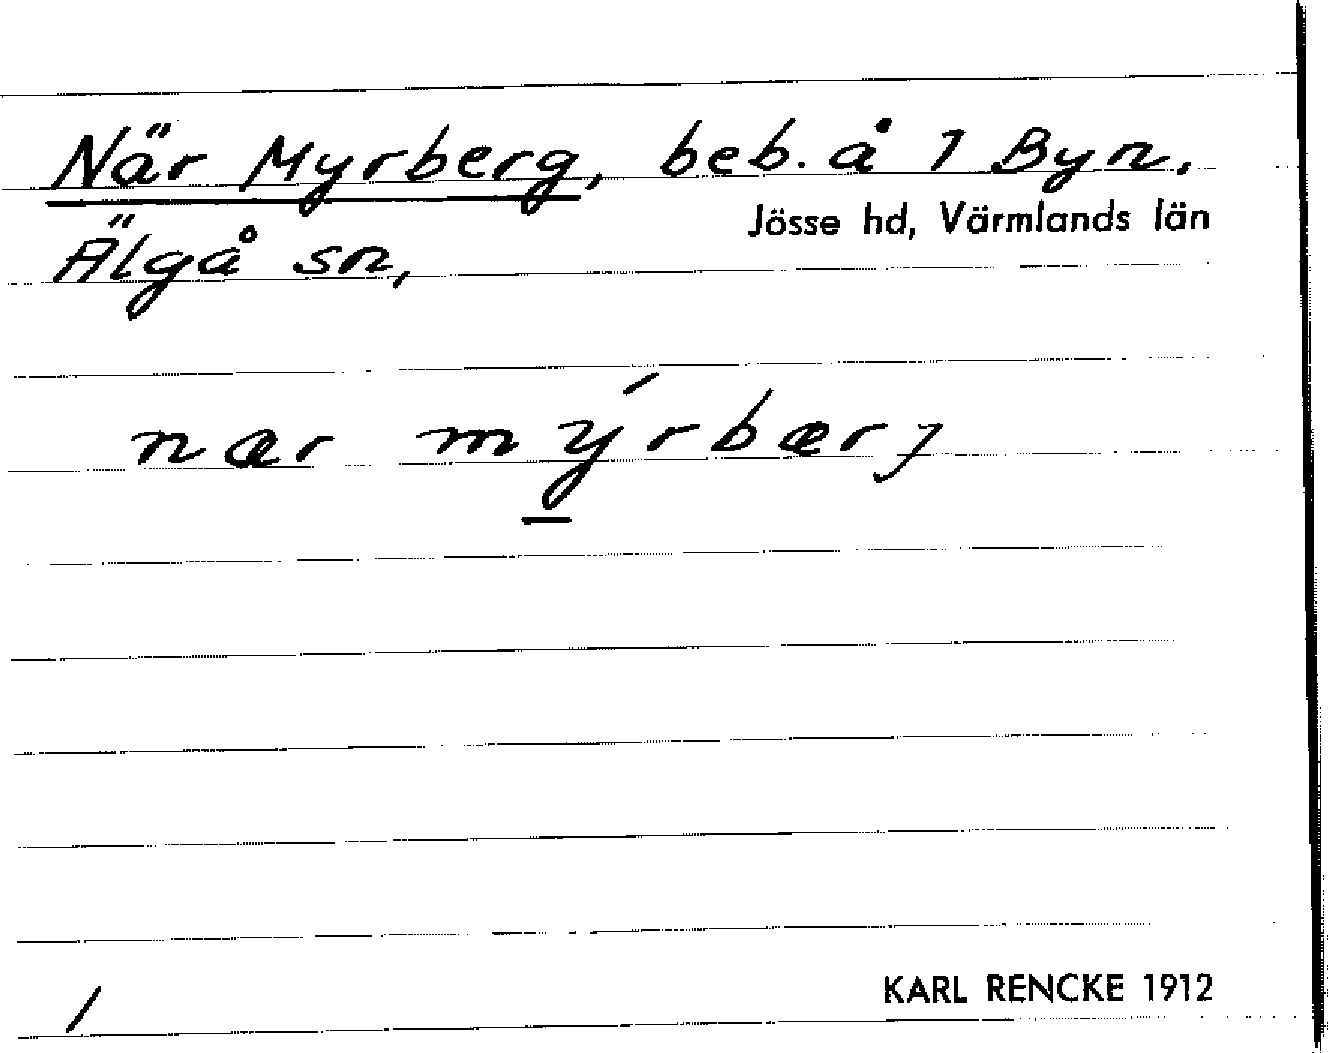 När Myrberg, beb. å 1 Byn.
Jösse hd, Värmlands län
Älgå sn,
nær mýrbærj
/
KARL RENCKE 1912